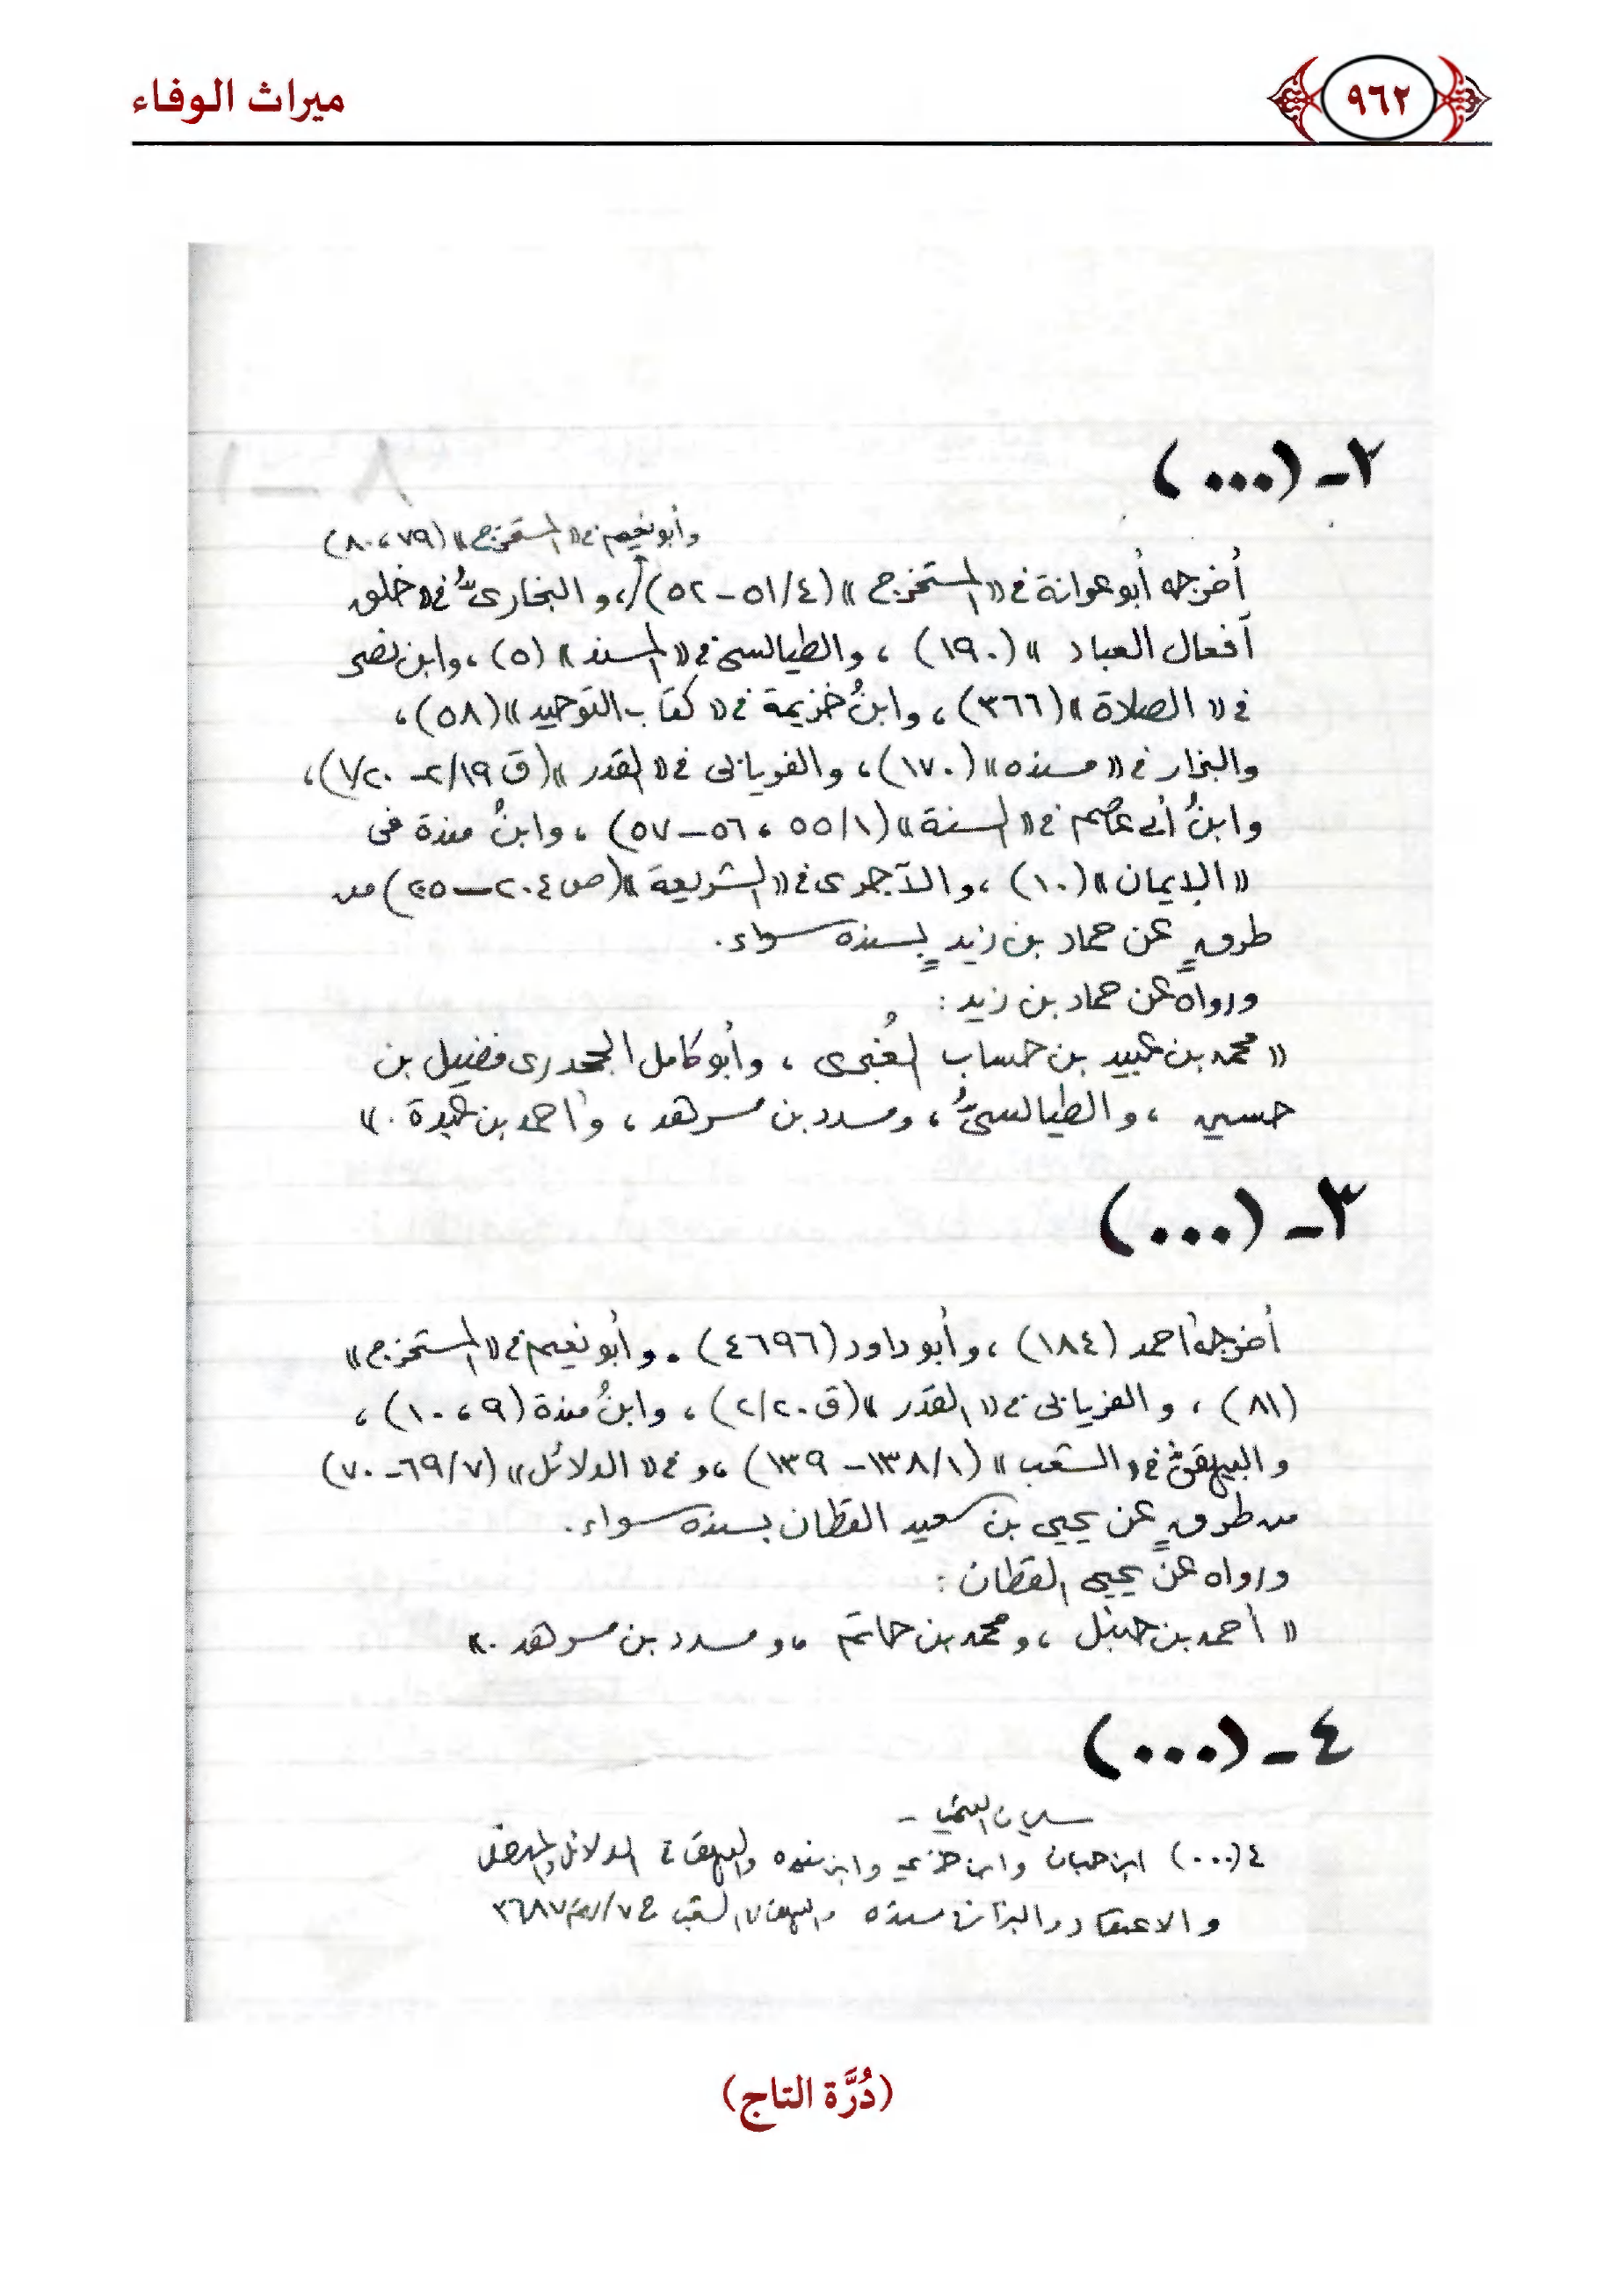 ميراث الوفاء
٩٦٢
٢- (...)
وأبو نعيم في «المستخرج» (٧٩، ٨٠)
أخرجه أبو عوانة في «المستخرج» (٤/٥١-٥٢)، والبخاريُّ في «خلق
أفعال العباد» (١٩٠)، والطيالسي في «المسند» (٥)، وابن نصر
في «الصلاة» (٣٦٦)، وابنُ خزيمة في «كتاب التوحيد» (٥٨)،
والبزار في «مسنده» (١٧٠)، والفريابي في «القدر» (ق ١٩/٢- ٢٠/١)،
وابنُ أبي عاصم في «السنة» (١/٥٥، ٥٦-٥٧)، وابنُ مندة في
«الإيمان» (١٠)، والآجرى في «الشريعة» (ص ٢٠٤-٢٠٥) من
طرقٍ عن حماد بن زيد بسنده سواء.
ورواه عن حماد بن زيد:
«محمد بن عبيد بن حساب الغُبرى، وأبو كامل الجحدرى فضيل بن
حسين، والطيالسىُّ، ومسدد بن مسرهد، وأحمد بن عبدة.»
٣- (...)
أخرجه أحمد (١٨٤)، وأبو داود (٤٦٩٦). وأبو نعيم في «المستخرج»
(٨١)، والفريابي في «القدر» (ق ٢٠/٢)، وابنُ مندة (٩، ١٠)،
والبيهقىُّ في «الشعب» (١/١٣٨-١٣٩)، وفي «الدلائل» (٧/٦٩-٧٠)
من طرقٍ عن يحيى بن سعيد القطان بسنده سواء.
ورواه عن يحيى القطان:
«أحمد بن حنبل، ومحمد بن حاتم، ومسدد بن مسرهد.»
٤- (...)
سليمان التيمي -
٤ (...) ابن حبان وابن خزيمة وابن منده والبيهقي في الدلائل
والاعتقاد والبزار في مسنده والبيهقي في الشعب
(دُرَّة التاج)